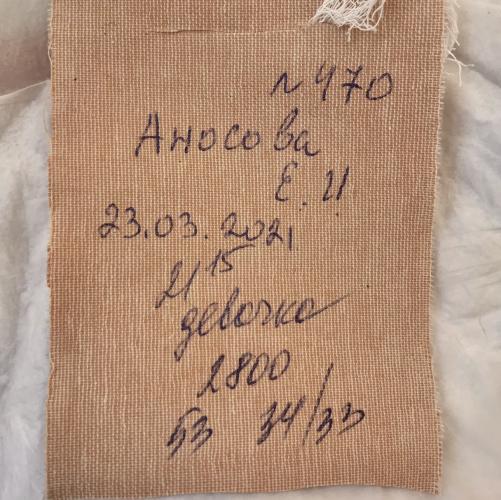 №470
Аносова
Е. И
23.03.2021
21 15
девочка
2800
53 34/33